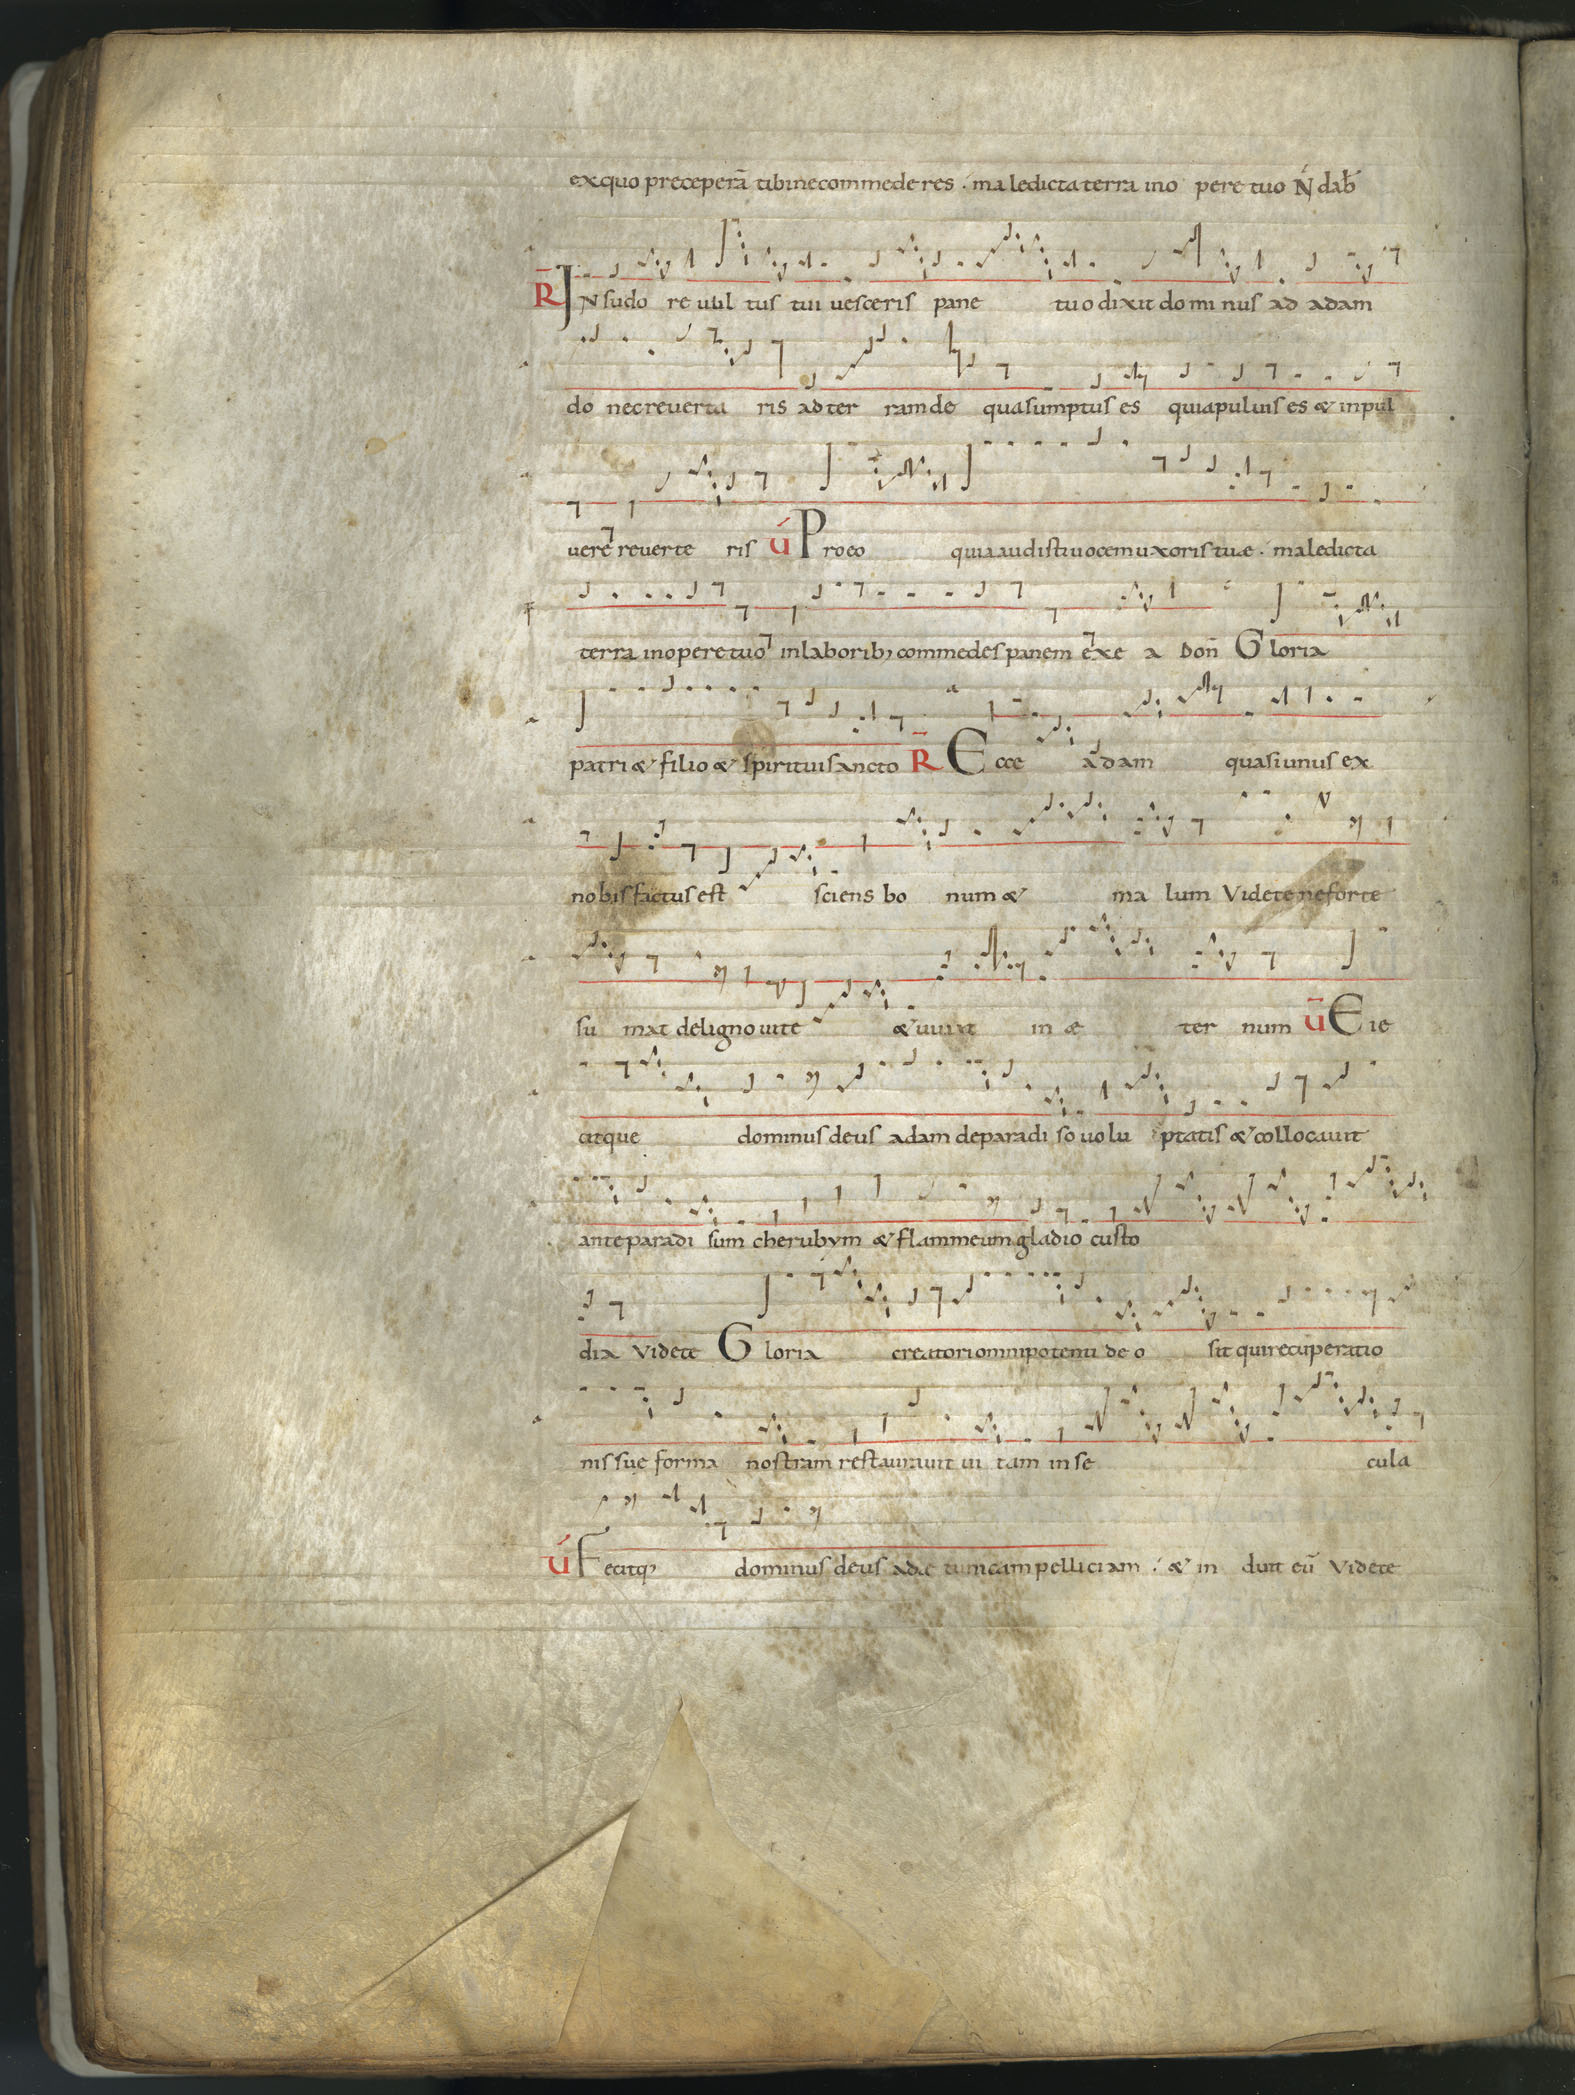 ex quo preceperā tibi ne commederes . maledicta terra in opere tuo Ń dab̄
R̄ IN sudore uultus tui uesceris pane tuo dixit dominus ad adam
do nec reuertaris ad terram de qua sumptus es quia puluis es & in pul
uere reuerteris V́ Pro eo quia audisti uocem uxoris tuæ . maledicta
terra in opere tuo in laborib; commedes panem exe a Don̄ Gloria
patri & filio & spiritui sancto R̄ Ecce adam quasi unus ex
nobis factus est sciens bonum & malum Videte ne forte
sumat de ligno uite & uiuat in æternum V̄ Eie
citque dominus deus adam de paradiso uoluptatis & collocauit
ante paradisum cherubym & flammeum gladio custo
dia Videte Gloria creatori omnipotenti deo sit qui recuperatio
nis sue forma nostram restaurauit uitam in secula
V́ Fecitq; dominus deus adæ tunicam pelliciam . & induit eū Videte